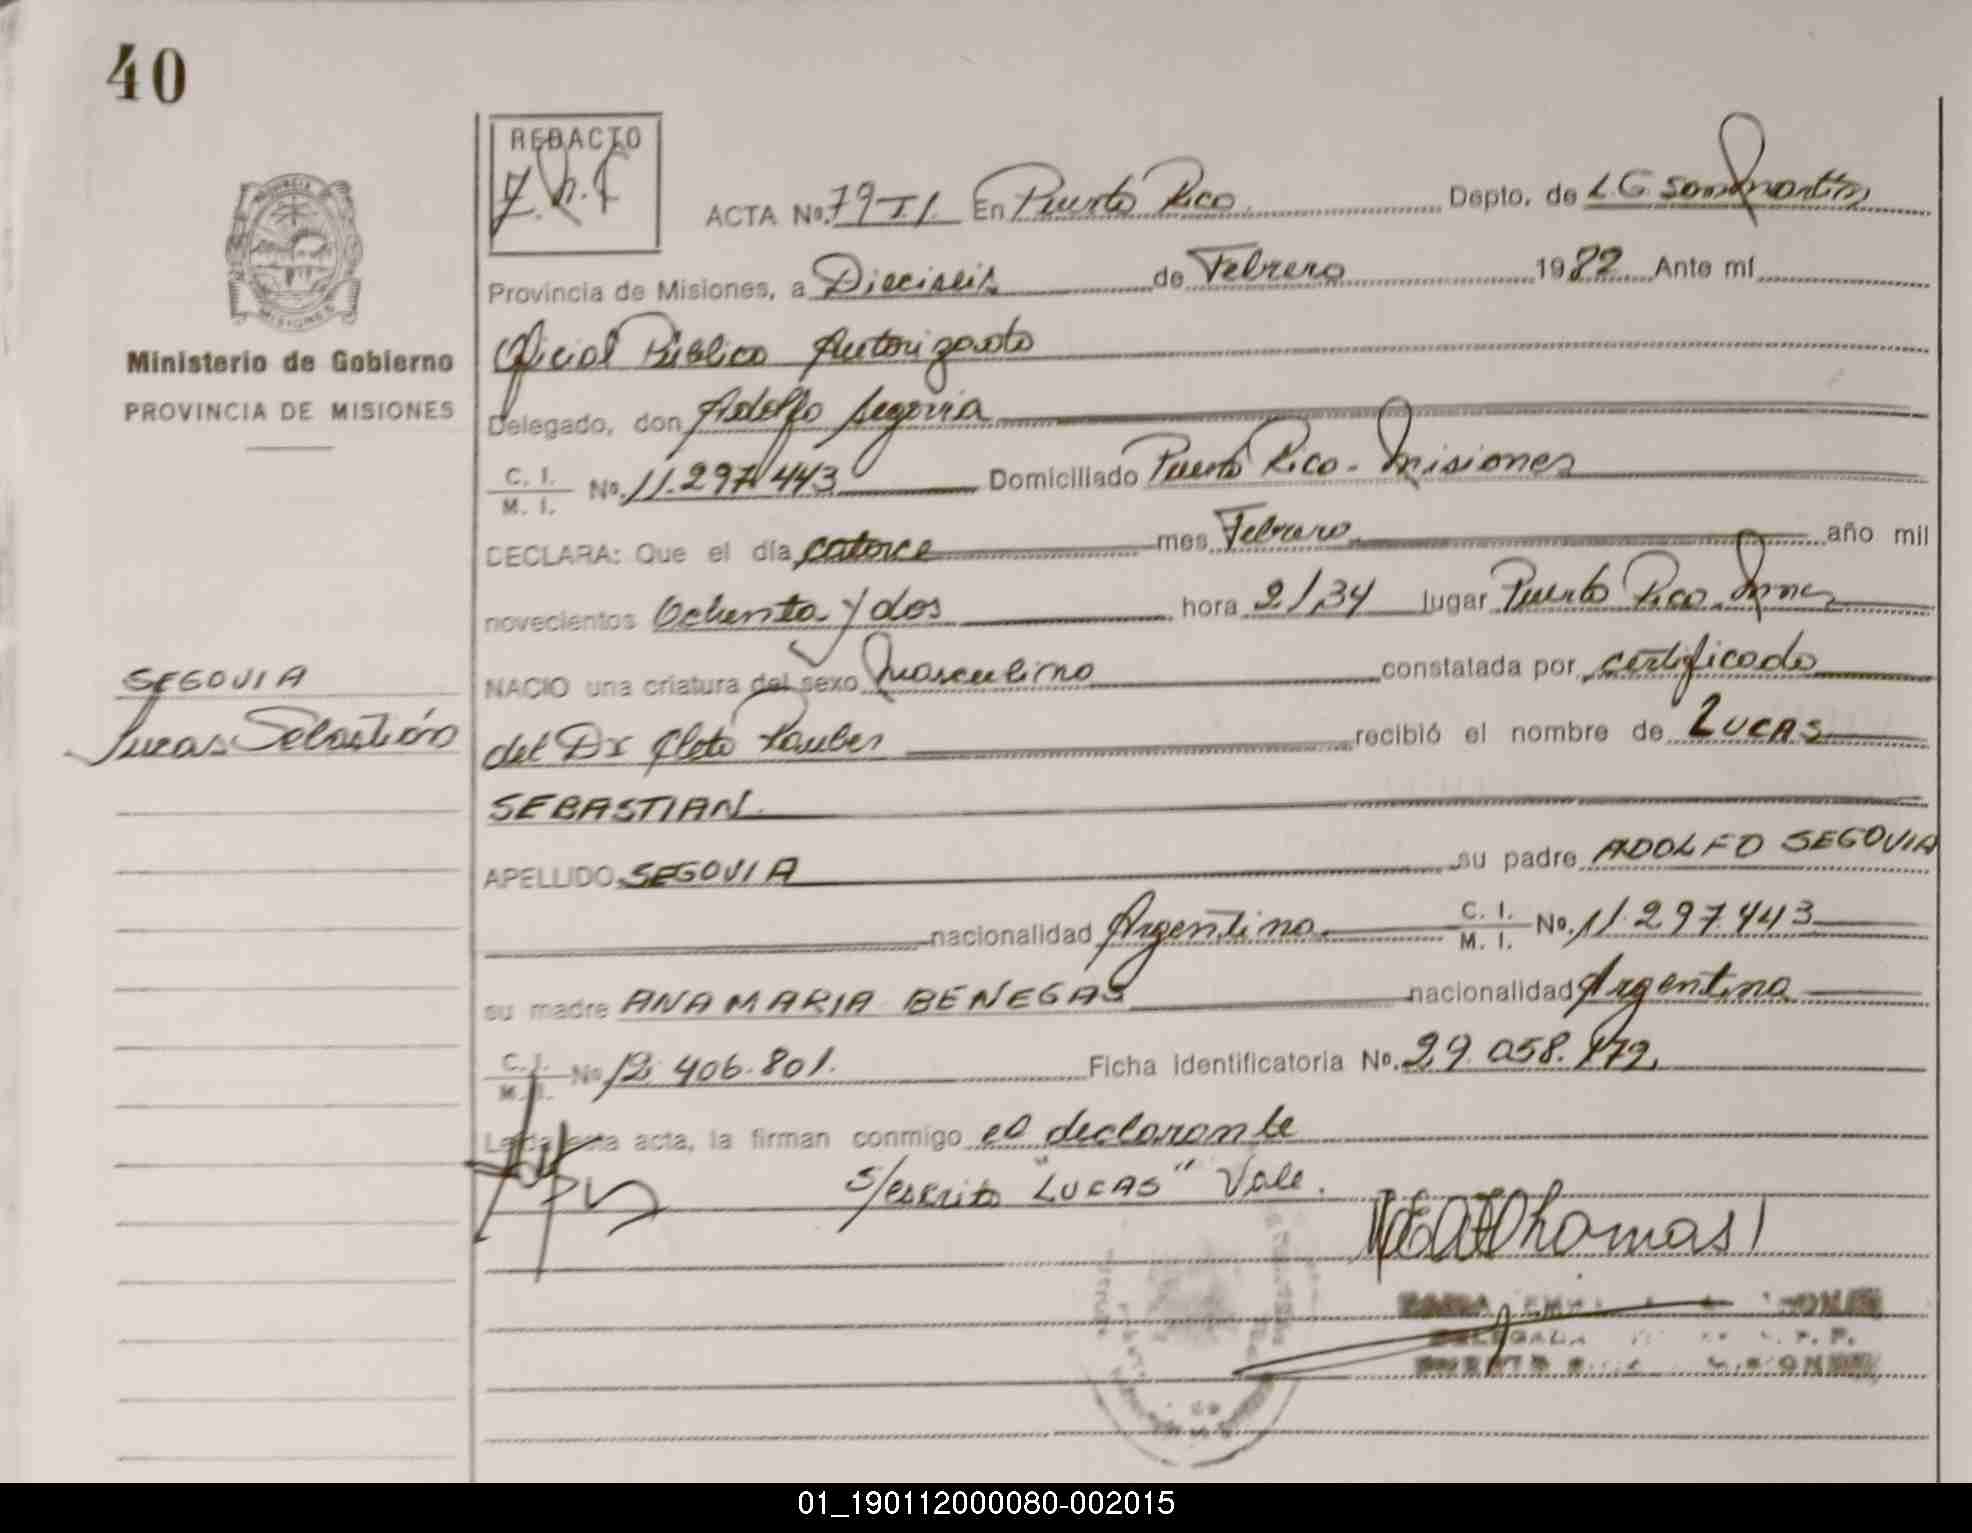 40
REDACTO
ACTA No. 79 T.I. En Puerto Rico Depto. de L.G. San Martín
Provincia de Misiones, a Dieciseis de Febrero 1982 Ante mí
Oficial Público Autorizado
Delegado, don Adolfo Segovia
C. I. / M. I. No. 11.297.443 Domiciliado Puerto Rico - Misiones
DECLARA: Que el día catorce mes Febrero año mil
novecientos Ochenta y dos hora 2/34 lugar Puerto Rico Mnes
NACIO una criatura del sexo Masculino constatada por certificado
del Dr recibió el nombre de LUCAS
SEBASTIAN
APELLIDO SEGOVIA su padre ADOLFO SEGOVIA
nacionalidad Argentina C. I. / M. I. No. 11.297.443
su madre ANA MARIA BENEGAS nacionalidad Argentina
C. I. / M. I. No 12.406.801. Ficha identificatoria No. 29.058.172
Leída esta acta, la firman conmigo el declarante
s/escrito "LUCAS" Vale.
Thomas
DELEGADA
Ministerio de Gobierno
PROVINCIA DE MISIONES
SEGOVIA
Lucas Sebastián
01_190112000080-002015